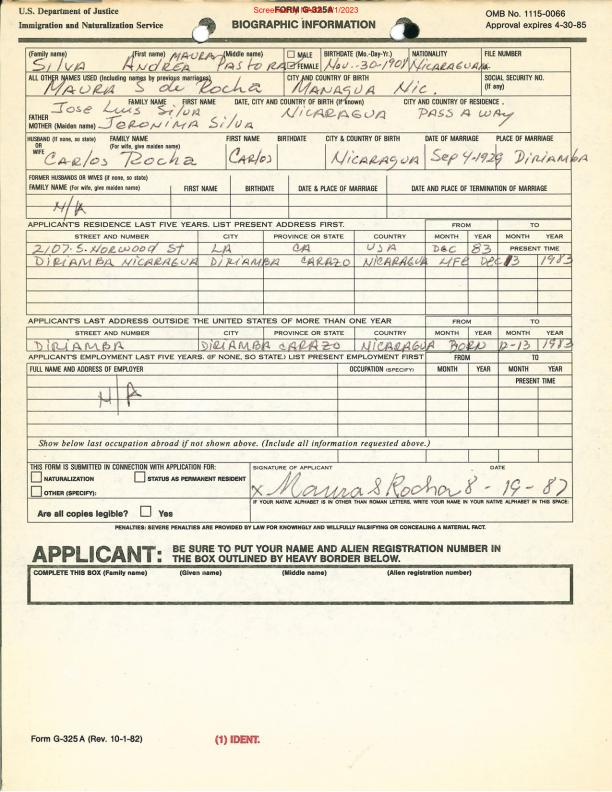 U.S. Department of Justice
Immigration and Naturalization Service
FORM G-325A
BIOGRAPHIC INFORMATION
OMB No. 1115-0066
Approval expires 4-30-85
(Family name) (First name) (Middle name) MALE FEMALE BIRTHDATE (Mo.-Day-Yr.) NATIONALITY FILE NUMBER
SILVA ANDREA MAURA PASTORA NOV.-30-1901 NICARAGUAN
ALL OTHER NAMES USED (Including names by previous marriages) CITY AND COUNTRY OF BIRTH SOCIAL SECURITY NO. (If any)
MAURA S de Rocha MANAGUA NIC.
FAMILY NAME FIRST NAME DATE, CITY AND COUNTRY OF BIRTH (If known) CITY AND COUNTRY OF RESIDENCE
FATHER Jose Luis Silva NICARAGUA PASS A WAY
MOTHER (Maiden name) JERONIMA SILVA
HUSBAND (If none, so state) OR WIFE FAMILY NAME (For wife, give maiden name) FIRST NAME BIRTHDATE CITY & COUNTRY OF BIRTH DATE OF MARRIAGE PLACE OF MARRIAGE
CARLOS Rocha CARLOS NICARAGUA Sep 4-1929 DIRIAMBA
FORMER HUSBANDS OR WIVES (If none, so state)
FAMILY NAME (For wife, give maiden name) FIRST NAME BIRTHDATE DATE & PLACE OF MARRIAGE DATE AND PLACE OF TERMINATION OF MARRIAGE
N/A
APPLICANT'S RESIDENCE LAST FIVE YEARS. LIST PRESENT ADDRESS FIRST. FROM TO
STREET AND NUMBER CITY PROVINCE OR STATE COUNTRY MONTH YEAR MONTH YEAR
2107 S. NORWOOD St LA CA USA DEC 83 PRESENT TIME
DIRIAMBA NICARAGUA DIRIAMBA CARAZO NICARAGUA LIFE DEC 13 1983
APPLICANT'S LAST ADDRESS OUTSIDE THE UNITED STATES OF MORE THAN ONE YEAR FROM TO
STREET AND NUMBER CITY PROVINCE OR STATE COUNTRY MONTH YEAR MONTH YEAR
DIRIAMBA DIRIAMBA CARAZO NICARAGUA BORN 12-13 1983
APPLICANT'S EMPLOYMENT LAST FIVE YEARS. (IF NONE, SO STATE.) LIST PRESENT EMPLOYMENT FIRST FROM TO
FULL NAME AND ADDRESS OF EMPLOYER OCCUPATION (SPECIFY) MONTH YEAR MONTH YEAR
PRESENT TIME
N/A
Show below last occupation abroad if not shown above. (Include all information requested above.)
THIS FORM IS SUBMITTED IN CONNECTION WITH APPLICATION FOR: SIGNATURE OF APPLICANT DATE
NATURALIZATION STATUS AS PERMANENT RESIDENT
OTHER (SPECIFY):
x Maura S Rocha 8-19-87
IF YOUR NATIVE ALPHABET IS IN OTHER THAN ROMAN LETTERS, WRITE YOUR NAME IN YOUR NATIVE ALPHABET IN THIS SPACE:
Are all copies legible? Yes
PENALTIES: SEVERE PENALTIES ARE PROVIDED BY LAW FOR KNOWINGLY AND WILLFULLY FALSIFYING OR CONCEALING A MATERIAL FACT.
APPLICANT: BE SURE TO PUT YOUR NAME AND ALIEN REGISTRATION NUMBER IN THE BOX OUTLINED BY HEAVY BORDER BELOW.
COMPLETE THIS BOX (Family name) (Given name) (Middle name) (Alien registration number)
Form G-325 A (Rev. 10-1-82)
(1) IDENT.